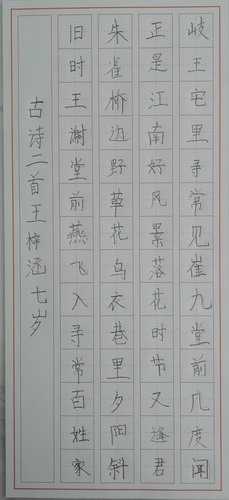 岐王宅里寻常见崔九堂前几度闻
正是江南好风景落花时节又逢君
朱雀桥边野草花乌衣巷里夕阳斜
旧时王谢堂前燕飞入寻常百姓家
古诗二首王梓涵七岁